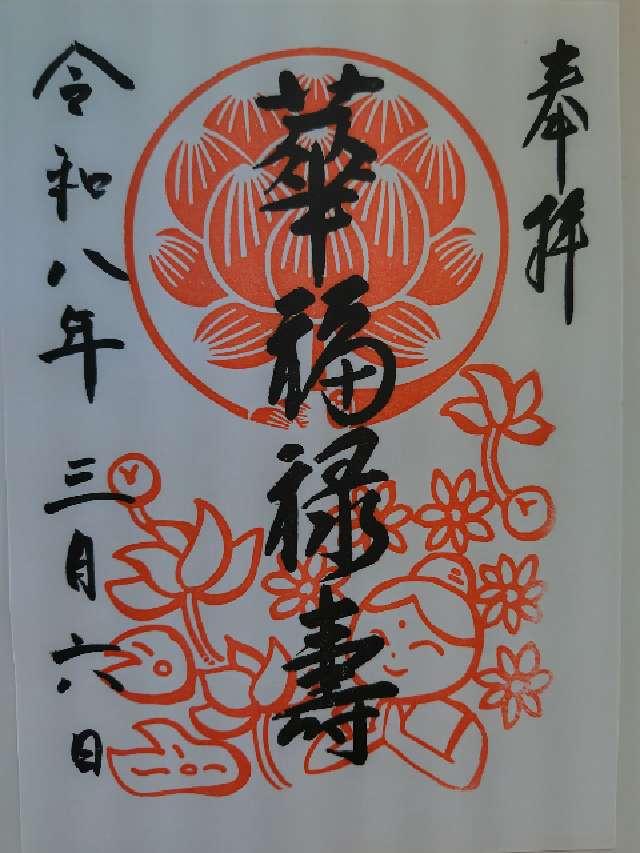 奉拝
華福禄壽
令和八年三月六日